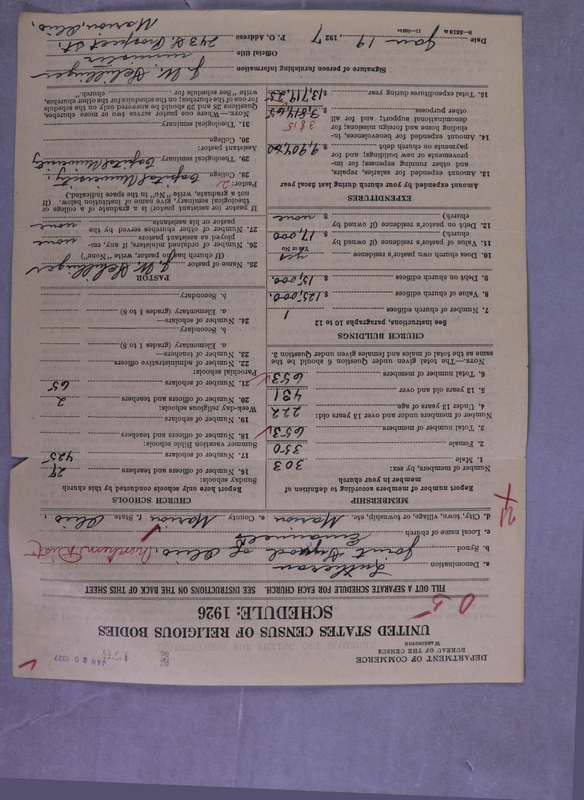 DEPARTMENT OF COMMERCE
BUREAU OF THE CENSUS
WASHINGTON
JAN 20 1927
UNITED STATES CENSUS OF RELIGIOUS BODIES
SCHEDULE: 1926
0-5
FILL OUT A SEPARATE SCHEDULE FOR EACH CHURCH. SEE INSTRUCTIONS ON THE BACK OF THIS SHEET
a. Denomination Lutheran
b. Synod Joint Synod of Ohio,
c. Local name of church
d. City, town, village, or township, etc. Marion e. County Marion f. State Ohio,
MEMBERSHIP
Report number of members according to definition of
member in your church
Number of members, by sex:
1. Male 303
2. Female 350
3. Total number of members. 653
Number of members under and over 13 years old:
4. Under 13 years of age. 222
5. 13 years old and over 431
6. Total number of members 653
NOTE.—The total given under Question 6 should be the
same as the total of males and females given under Question 3.
CHURCH BUILDINGS
See instructions, paragraphs 10 to 12
7. Number of church edifices 1
8. Value of church edifices $ 125,000.
9. Debt on church edifices $ 15,000.
10. Does church own pastor's residence yes
Yes or No
11. Value of pastor's residence (if owned by
church) $ 17,000
12. Debt on pastor's residence (if owned by
church) $ none
EXPENDITURES
Amount expended by your church during last fiscal year
13. Amount expended for salaries, repairs,
and other running expenses; for im-
provements or new buildings; and for
payments on church debt $ 9,904.60
14. Amount expended for benevolences, in-
cluding home and foreign missions; for
denominational support; and for all
other purposes. $ 3,814.65
3815
15. Total expenditures during year. $ 13,719.25
CHURCH SCHOOLS
Report here only schools conducted by this church
Sunday schools:
16. Number of officers and teachers 27
17. Number of scholars 425
Summer vacation Bible schools:
18. Number of officers and teachers
19. Number of scholars
Week-day religious schools:
20. Number of officers and teachers 2
21. Number of scholars 65
Parochial schools:
22. Number of administrative officers.
23. Number of teachers—
a. Elementary (grades 1 to 8)
b. Secondary
24. Number of scholars—
a. Elementary (grades 1 to 8)
b. Secondary
PASTOR
25. Name of pastor J. W. Schillinger
(If church has no pastor, write "None")
26. Number of ordained ministers, if any, em-
ployed as assistant pastors none
27. Number of other churches served by the
pastor or his assistants none
If pastor (or assistant pastor) is a graduate of a college or
theological seminary, give name of institution below. (If
not a graduate, write "No," in the space indicated.)
Pastor: 2
28. College. Capital University,
29. Theological seminary. Capital University
Assistant pastor:
30. College.
31. Theological seminary
NOTE.—Where one pastor serves two or more churches,
questions 28 and 29 should be answered only on the schedule
for one of the churches; on the schedules for the other churches,
write "See schedule for church."
Signature of person furnishing information J. W. Schillinger
Official title minister
P. O. Address 243 S. Prospect St.,
Marion, Ohio,
Date Jan 19 1927